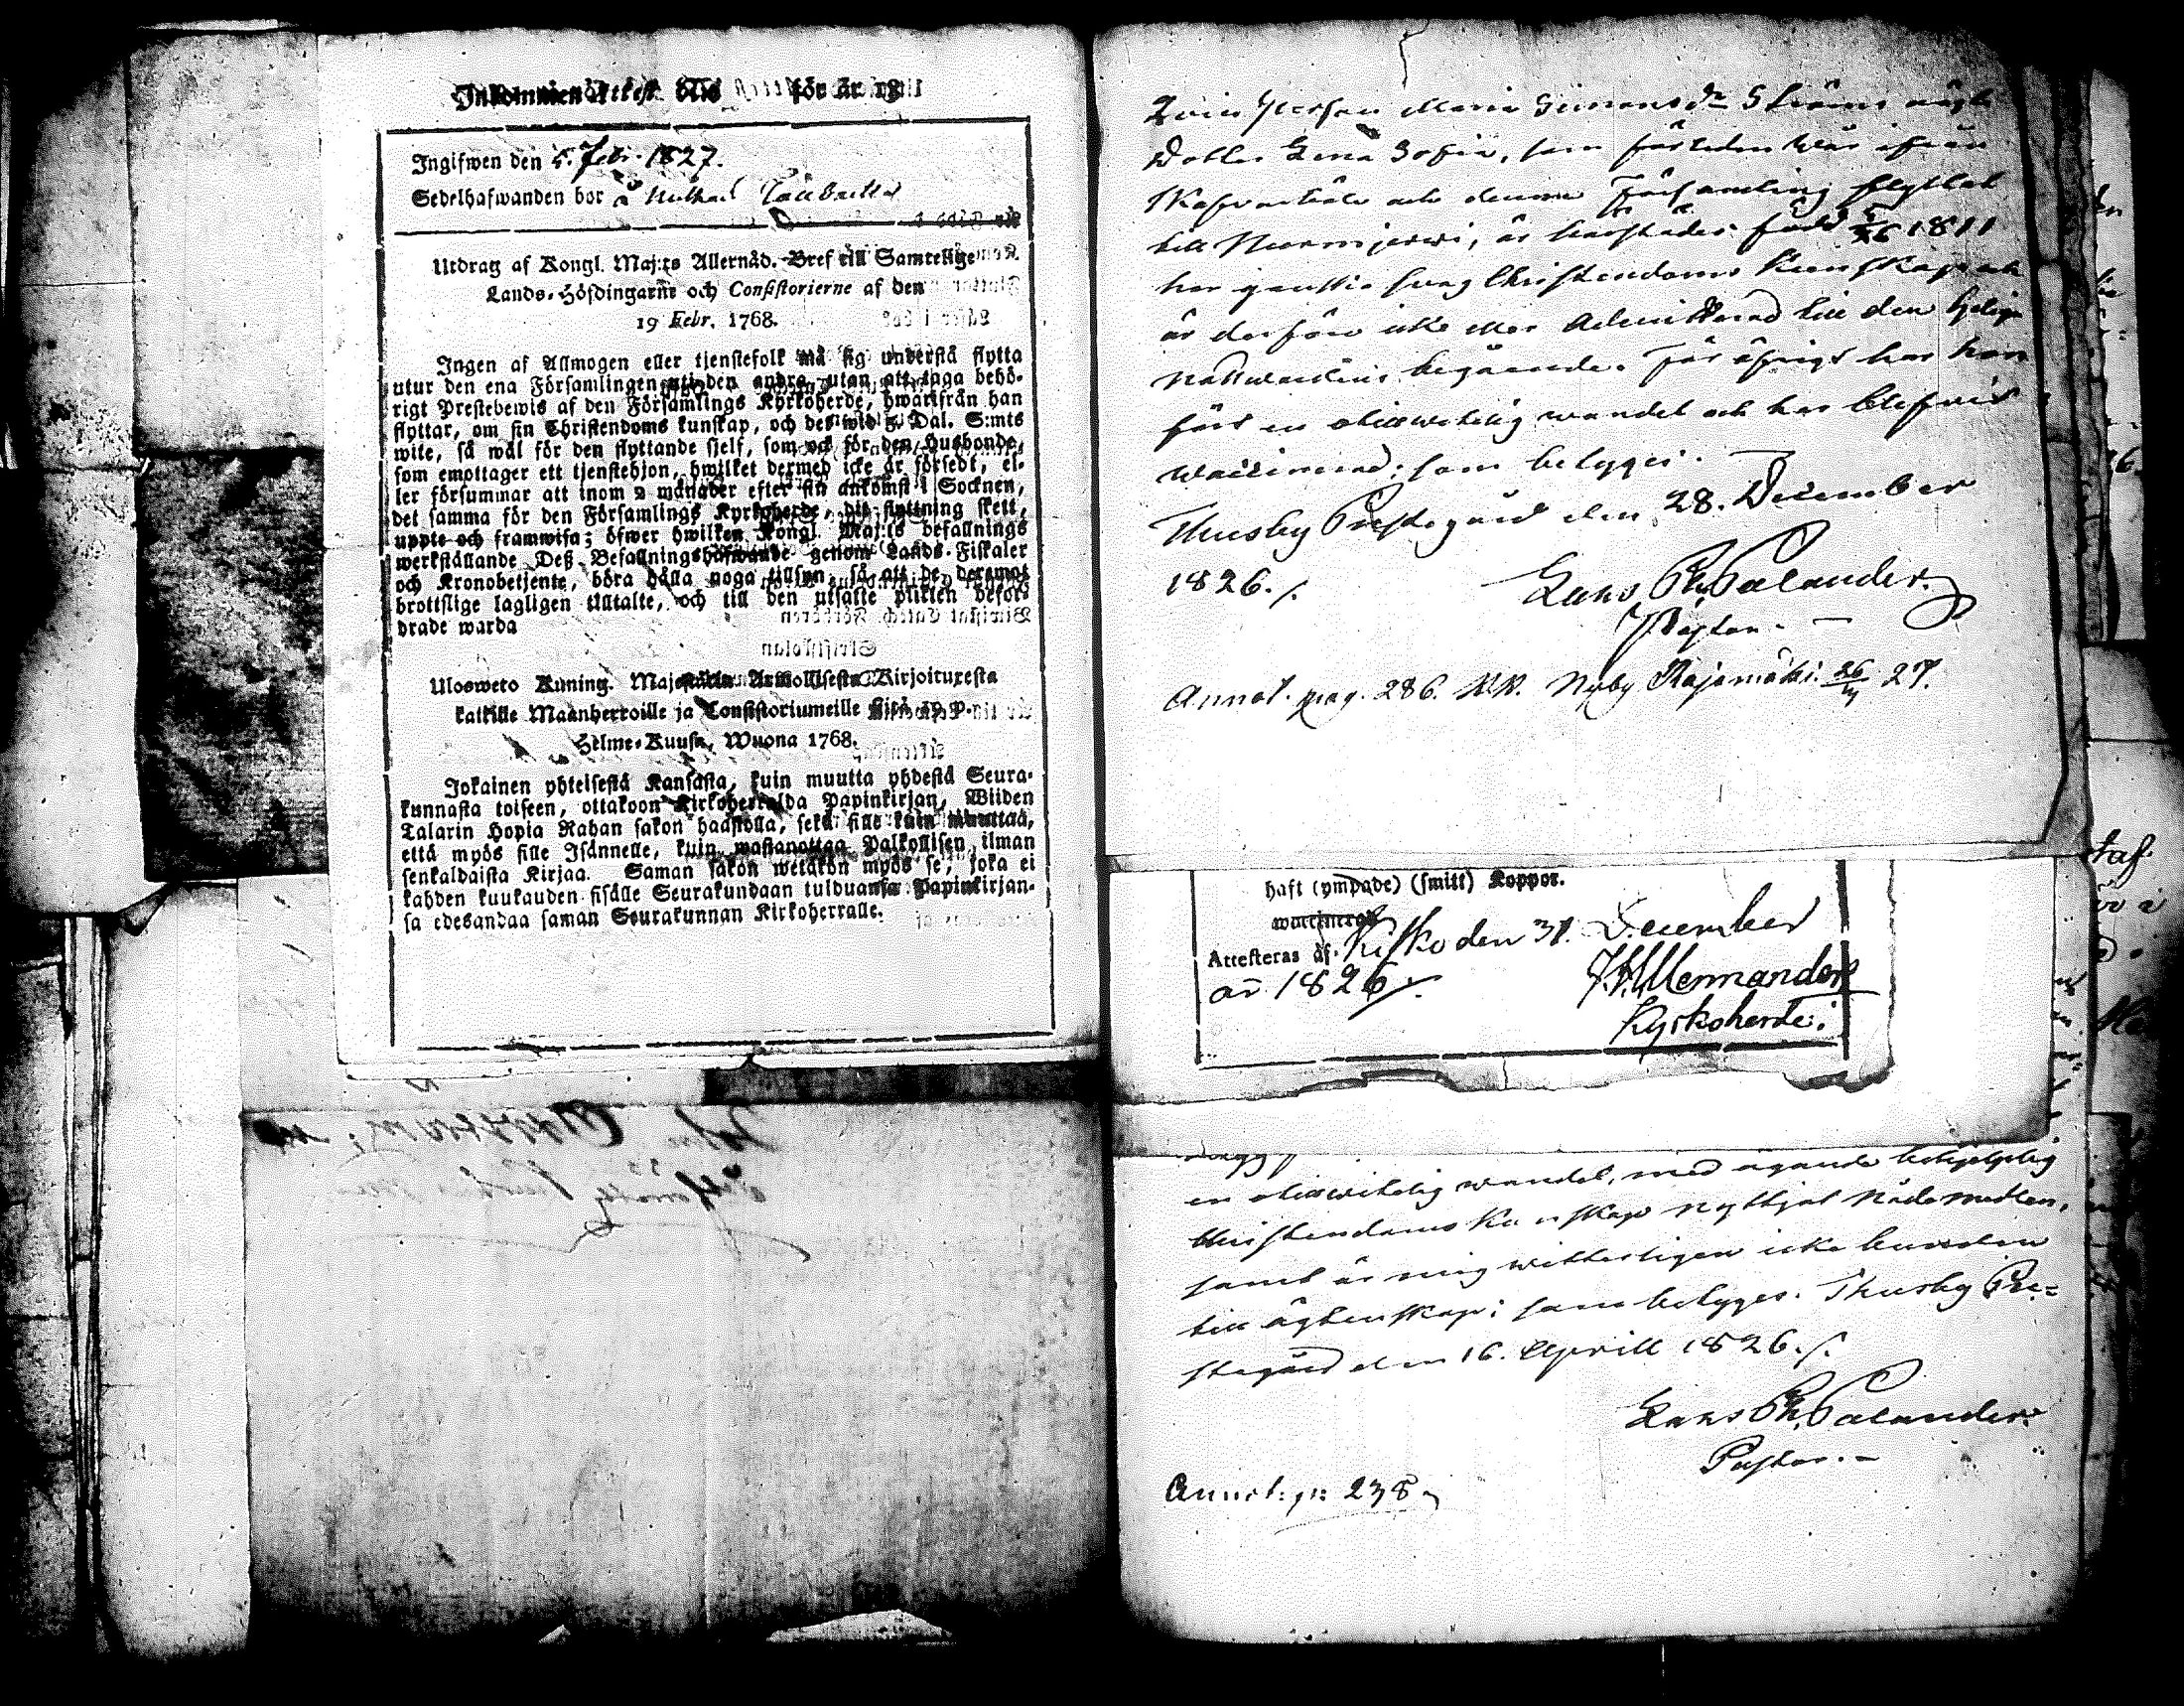 Inkommen Attest N:o för år 18
Ingifwen den 5. Febr. 1827.
Sedelhafwanden bor å
Utdrag af Kongl. Maj:ts Allernåd. Bref till Samtelige
Lands-Höfdingarne och Consistorierne af den
19 Febr. 1768.
Ingen af Allmogen eller tjenstefolk må sig understå flytta
utur den ena Församlingen uti den andra, utan att taga behö-
rigt Prestebewis af den Församlings Kyrkoherde, hwarifrån han
flyttar, om sin Christendoms kunskap, och des wid 5 Dal. S:mts
wite, så wäl för den flyttande sjelf, som ock för den Husbonde,
som emottager ett tjenstehjon, hwilket dermed icke är försedt, el-
ler försummar att inom 2 månader efter sin ankomst i Socknen,
det samma för den Församlings Kyrkoherde, dit flyttning skett,
uppte och framwisa; öfwer hwilken Kongl. Maj:ts befallnings
werkställande Deß Befallningshafwande genom Lands-Fiskaler
och Kronobetjente, böra hålla noga tillsyn, så att de deremot
brottslige lagligen tilltalte, och till den utsatte plikten beför-
drade warda
Ulosweto Kuning. Majestätin Armollisesta Kirjoituxesta
kaikille Maanherroille ja Consistoriumeille siitä 19 p.
Helme-Kuusa, Wuona 1768.
Jokainen yhteisestä Kansasta, kuin muutta yhdestä Seura-
kunnasta toiseen, ottakoon Kirkoherralda Papinkirjan, Wiiden
Talarin Hopia Rahan sakon haastolla, sekä sille kuin muuttaa,
että myös sille Isännelle, kuin wastanottaa Palkollisen ilman
senkaldaista Kirjaa. Saman sakon wetäkön myös se, joka ei
kahden kuukauden sisälle Seurakundaan tulduansa Papinkirjan-
sa edesandaa saman Seurakunnan Kirkoherralle.
Maria Simonsdr Ströms
Dotter Lena Sofia, som förleden Wår ifrån
och denna Församling flyttat
till Nurmijerwi, är härstädes född 1811
har ganska swag Christendoms Kunskap och
är derföre icke eller Admitterad till den helige
Nattwardens begående. För öfrigt har hon
fört en otadelig wandel och har blifwit
waccinerad; som betyges.
Thusby Prestegård den 28. December
1826./.
Lars Ph. Palander.
Pastor.
Annot. pag. 286. KK. Nyby Rajamäki. 26/4 27.
haft (ympade) (smitt) Koppor.
waccinerad
Attesteras af. Kisko den 31. December
år 1826./.
Kyrkoherde.
en wandel, med ägande behjelplig
Christendoms Kunskap nyttjat Nådemedlen,
samt är mig witterligen icke bunden
till ägtenskap; som betyges. Thusby Pre-
stegård den 16. Aprill 1826./.
Lars Ph. Palander.
Pastor.
Annot: p: 238